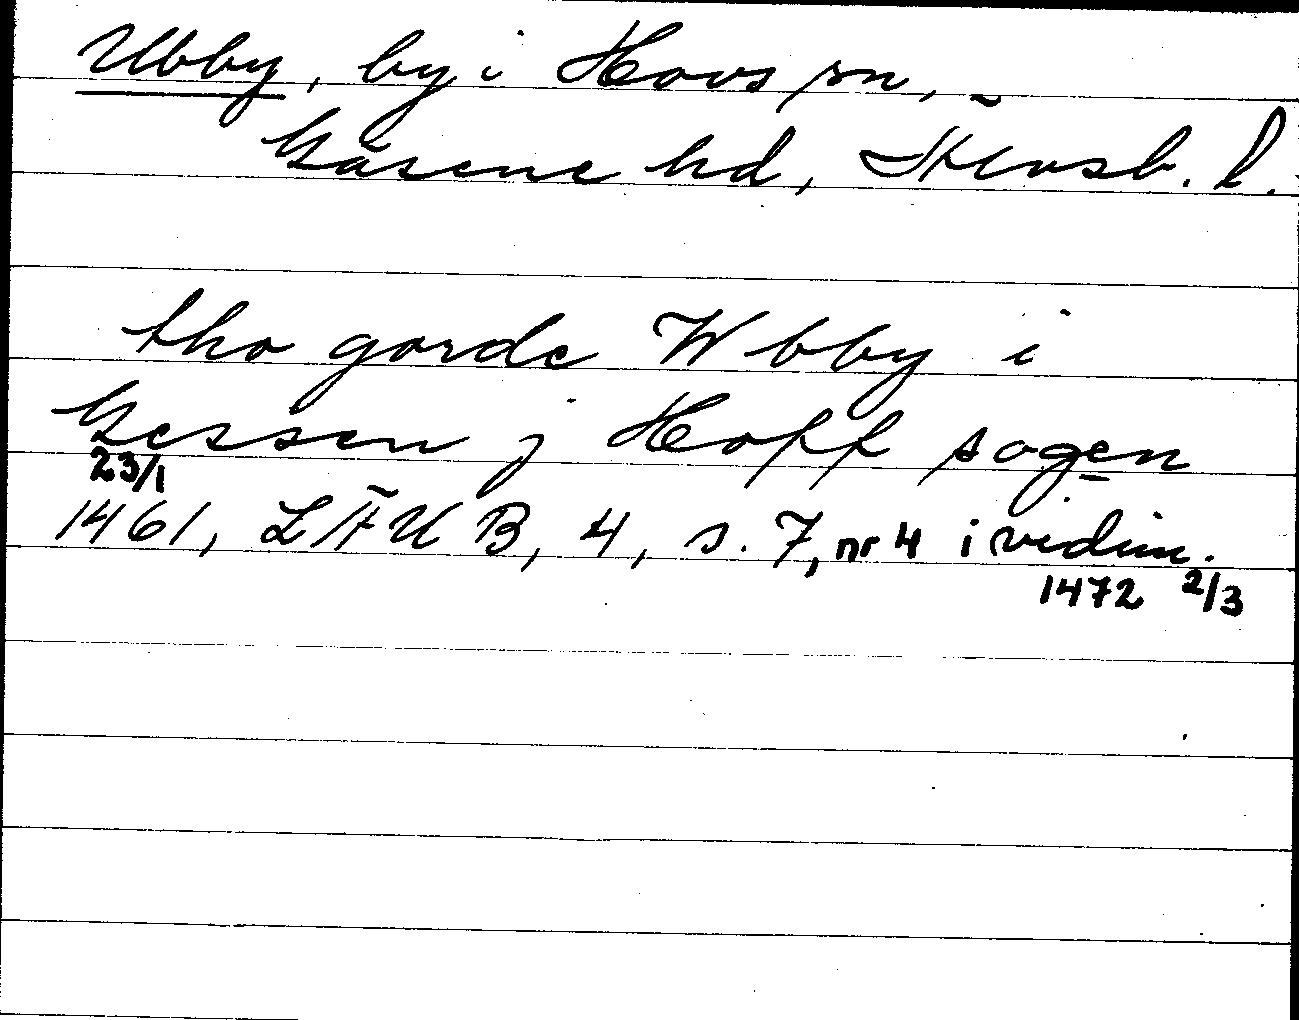 Ubby, by i Hovs sn,
Gäsene hd, Älvsb. l.
tho gorde Wbby i
Gessen j Hoff sogen
23/1
1461, LFUB, 4, s. 7, nr 4 i vidim.
1472 2/3